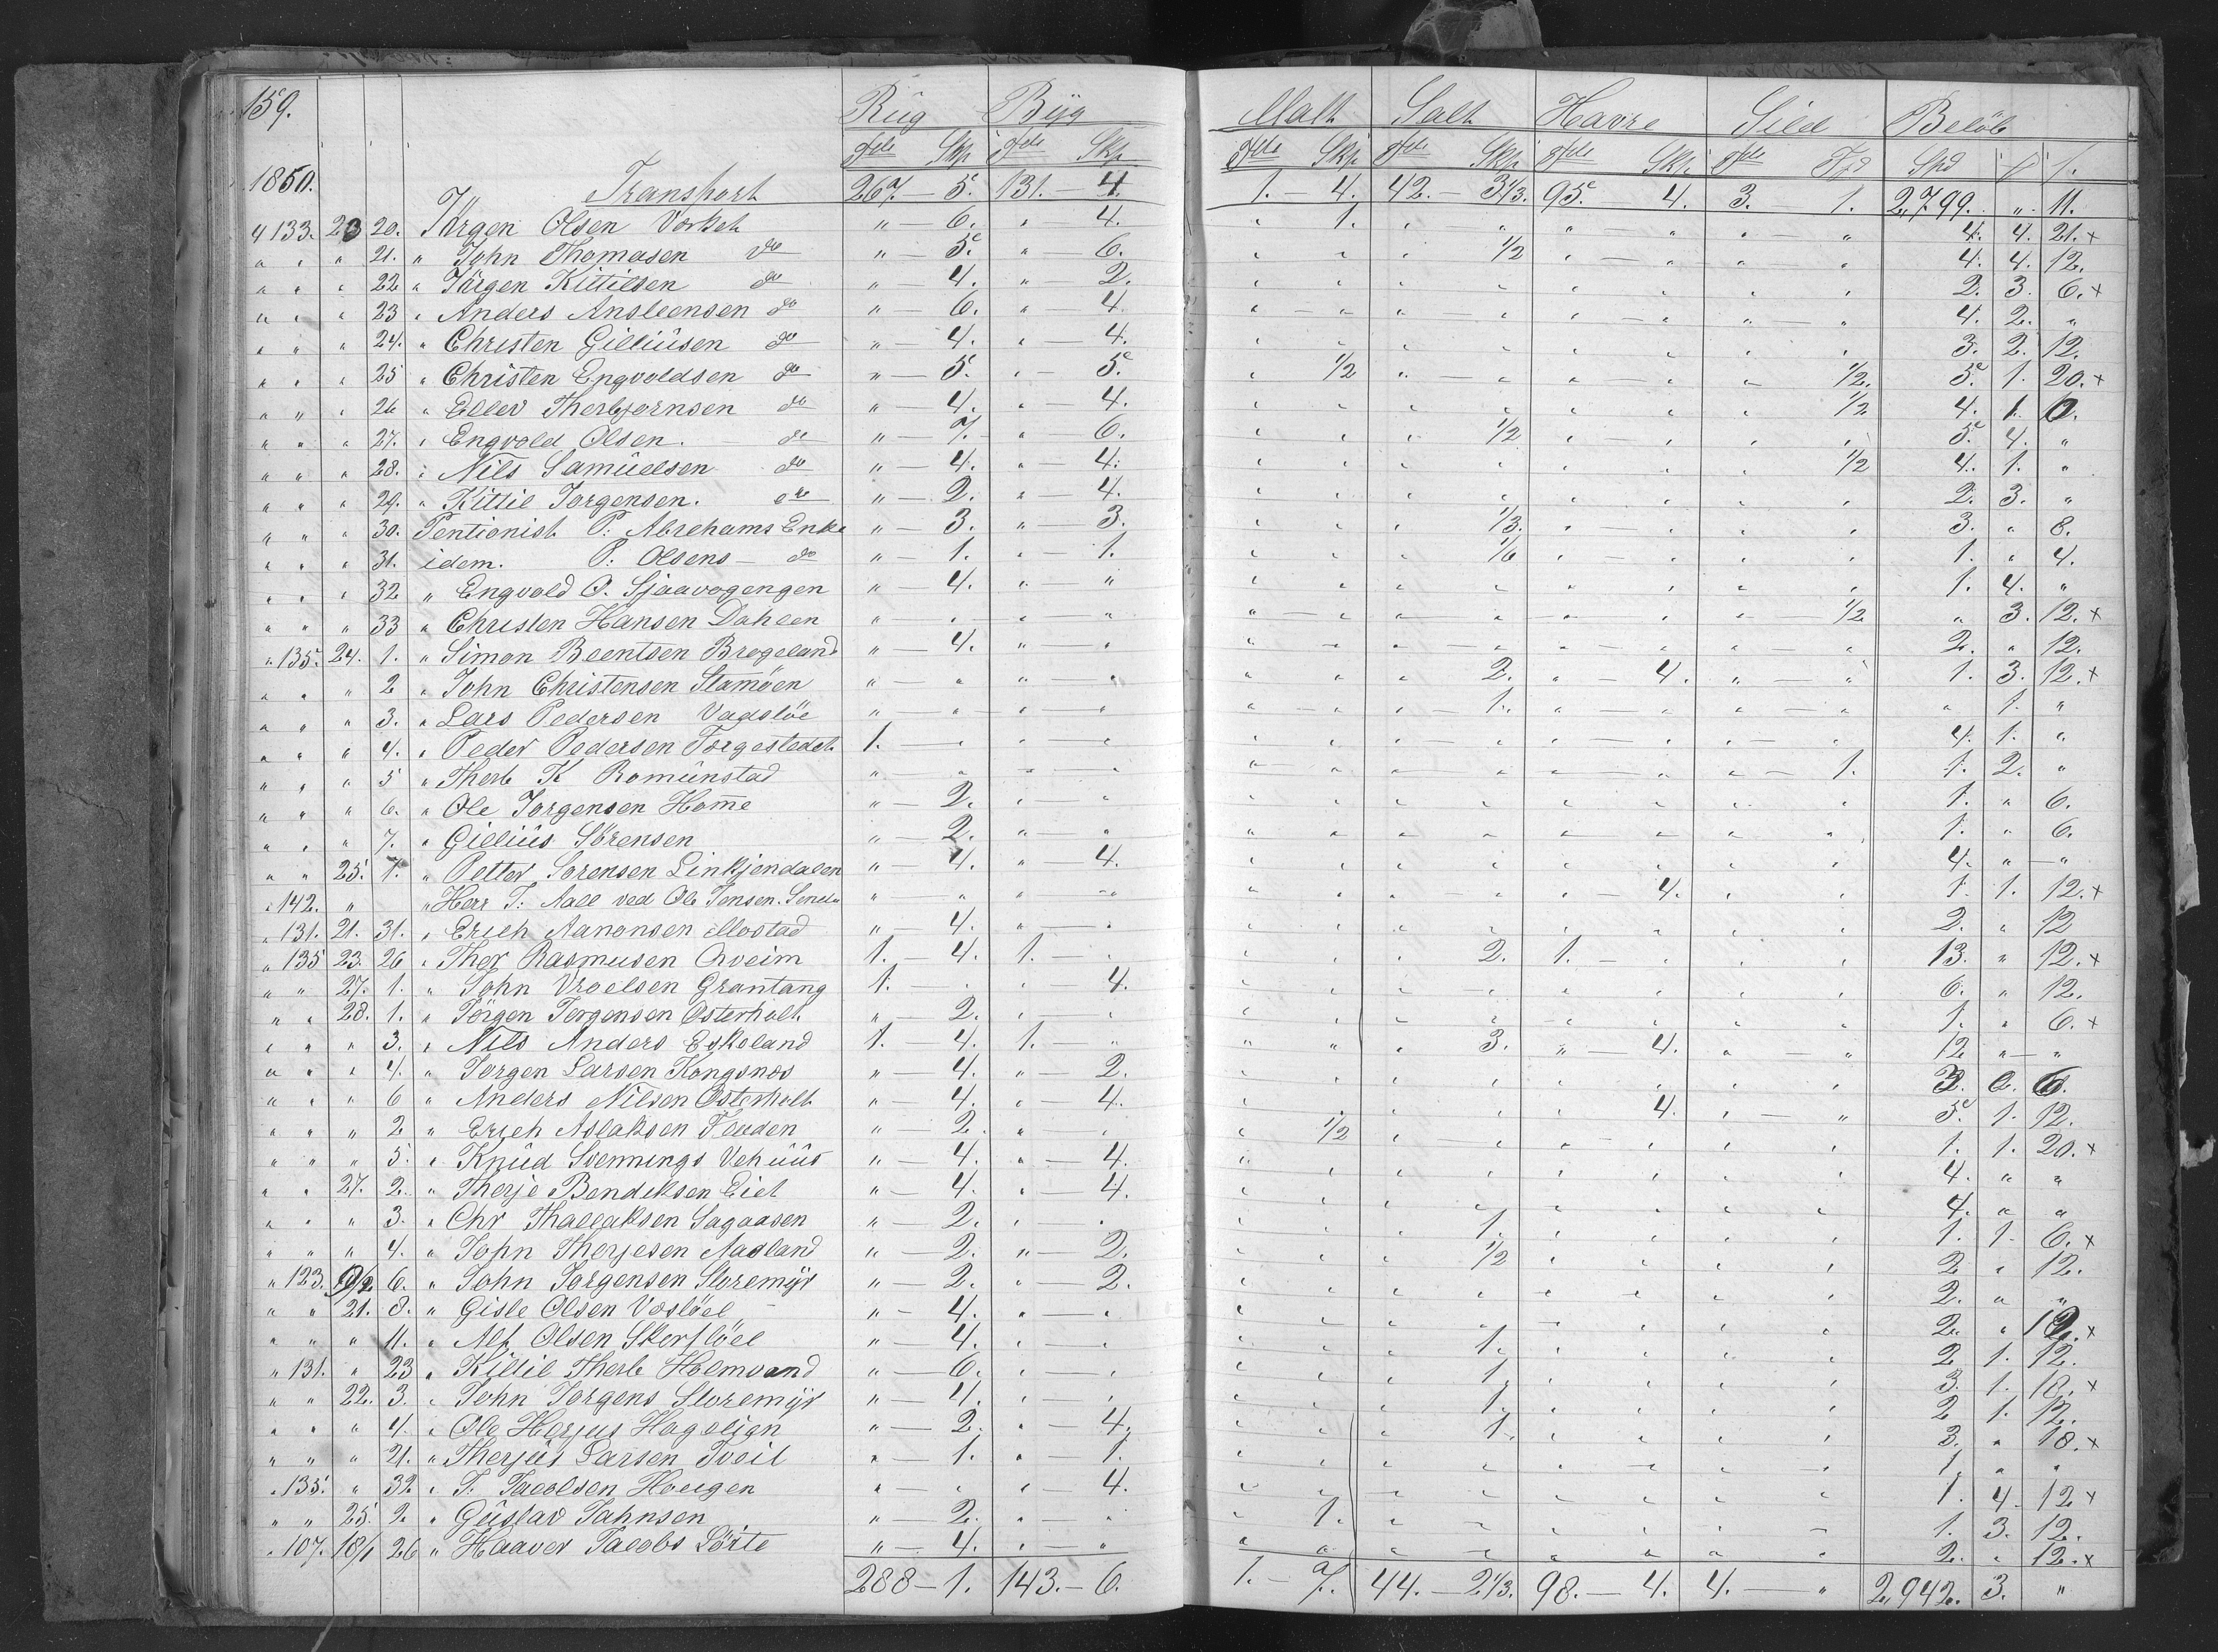 159. Rüg Byg Malt Salt Havre Sild Beløb
Tde Skp Tde Skp Tde Skp Tde Skp Tde Skp Tde Fjd Spd
1850. Transport 267 — 5. 131. — 4. 1. — 4. 42. — 3 1/3. 95. 4. 3. — 1. 2,799. " 11.
133. 23 20. Jørgen Olsen Værket " — 6. " 4. " 1. " " " " " " 4. 4. 21. +
" " " 21. " John Thomasen do " — 5. " 6. " " " 1/2 " " " " 4. 4. 12.
" " " 22 " Jørgen Kittilsen do " 4. " 2. " " " " " " " " 2. 3. 6. +
" " " 23 " Anders Ansteensen do " — 6. " 4. " " " " " " " " 4. 2. "
" " " 24. " Christen Gilliüsen do " — 4. " 4. " " " " " " " " 3. 2. 12.
" " " 25 " Christen Engvoldsen do " — 5. " — 5. " 1/2 " " " " " 1/2. 5. 1. 20. +
" " " 26 " Ellev Therbjørnsen do " 4. " — 4. " " " " " " " 1/2 4. 1. 0.
" " " 27. " Engvold Olsen. do " — 7. " 6. " " " 1/2 " " " " 5. 4. "
" " " 28. " Nils Samüelsen do " — 4. " — 4. " " " " " " " 1/2 4. 1. "
" " " 29. " Kittil Jørgensen. do " — 2. " 4. " " " " " " " " 2. 3. "
" " " 30. Pentionist P: Abrehams Enke " — 3. " — 3. " " " 1/3. " " " " 3. " 8.
" " " 31. idem. P: Olsens — do " — 1. " — 1. " " " 1/6 " " " " 1. " 4.
" " " 32 " Engvold O. Sjaavogengen " — 4. " — " " " " " " " " " 1. 4. "
" " " 33 " Christen Hansen Dahlen " — " " — " " " " " " " " 1/2 " 3. 12. +
" 135. 24. 1. " Simon Beentsen Brogeland " — 4. " — " " " " " " " " " 2. " 12.
" " " 2 " John Christensen Stamøen " — " " " " " " 2. " — 4. " " 1. 3. 12. +
" " " 3. " Lars Pedersen Vadsløe " — " " — " " " " 1. " " " " " 1. "
" " " 4. " Peder Pedersen Torgestedet 1. — " " — " " " " " " " " " 4. 1. "
" " " 5 " Therb K Romünstad " " " " " " " " " " " 1. 1. 2. "
" " " 6. " Ole Jørgensen Home " — 2. " " " " " " " " " " 1. " 6.
" " " 7. " Gilliüs Sørensen " — 2. " " " " " " " " " " 1. " 6.
" " 25. 7. " Petter Sørensen Linkjendalen " — 4. " 4. " " " " " " " " 4. " "
" 142. " " Herr T: Aall ved Ole Jensen. " — " " " " " " " " — 4. " " 1. 1. 12. +
" 131. 21. 31. " Erich Aanonsen Mostad " — 4. " — " " " " " " " " " 2. " 12
" 135 23. 26 " Ther Rasmusen Qveim 1. — 4. 1. — " " " " 2. 1. — " " " 13. " 12. +
" " 27. 1. " John Vroelsen Grantang 1. — " " 4. " " " " " " " " 6. " 12.
" " 28. 1. " Jørgen Jørgensen Østerholt " — 2. " " " " " " " " " " 1. " 6. +
" " " 3. " Nils Anders Eskeland 1. — 4. 1. — " " " " 3. " — 4. " " 12 " "
" " " 4. " Jørgen Larsen Kongsnæs " — 4. " — 2. " " " " " " " " 3. 2. 6.
" " " 6 " Anders Nilsen Østerholt " — 4. " — 4. " " " " " 4. " " 5. 1. 12.
" " " 2 " Erich Aslaksen Flauden " — 2. " " " 1/2 " " " " " " 1. 1. 20. +
" " " 5. " Knüd Svennings Vehüüs " — 4. " — 4. " " " " " " " " 4. " "
" " 27. 2. " Therje Bendiksen Eiet " — 4. " — 4. " " " " " " " " 4. " "
" " " 3. " Chr Thallaksen Sagaasen " — 2. " " " " " 1. " " " " 1. 1. 6. +
" " " 4. " John Therjesen Aasland " — 2. " — 2. " " " 1/2 " " " " 2 " 12.
" 123. 6. " John Jørgensen Storemyr " — 2. " — 2. " " " " " " " " 2. " "
" " 21. 8. " Gisle Olsen Vasløel " — 4. " — " " " " " " " " " 2. " 12. +
" " " 11. " Alf Olsen Skorsløel " — 4. " " " " " 1. " " " " 2 1. 12.
" 131. " 23 " Kittil Therb Holmvand " — 6. " " " " " 1. " " " " 3. 1. 18. +
" " 22. 3. " John Jørgens Storemyr " — 4. " " " " " 1. " " " " 2 1. 12.
" " " 4. " Ole Herjus Hagelian " — 2. " — 4. " " " 1. " " " " 3. " 18. +
" " " 21. " Therjüs Larsen Tveit " — 1. " — 1. " " " " " " " " 1. " "
" 135. " 32 " T. Jacobsen Hougen " — " " — 4. " " " " " " " " 1. 4. 12 +
" " 25. 2. " Güstav Jahnsen " — 2. " " " 1. " " " " " " 1. 3. 12.
" 107. 18/1 26 " Haaver Jacobs Lørte " — 4. " " " " " " " " " " 2. " 12. +
288 — 1. 143. — 6. 1. — 7. 44. — 2 1/3. 98. — 4. 4. — " 2,942. 3. "